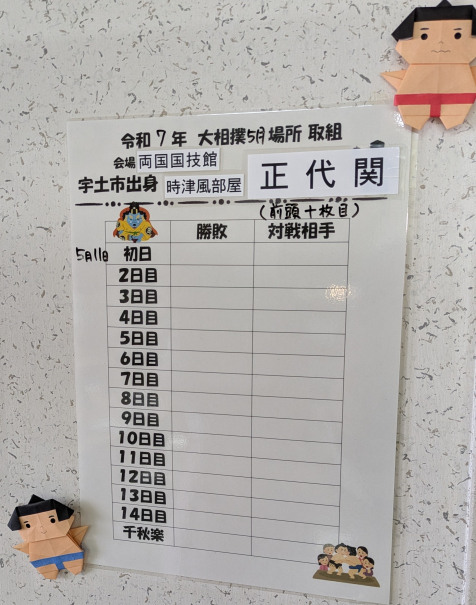 令和7年 大相撲5月場所 取組
会場 両国国技館
宇土市出身 時津風部屋 正代関
(前頭十枚目)
勝敗 対戦相手
5月11日 初日
2日目
3日目
4日目
5日目
6日目
7日目
8日目
9日目
10日目
11日目
12日目
13日目
14日目
千秋楽